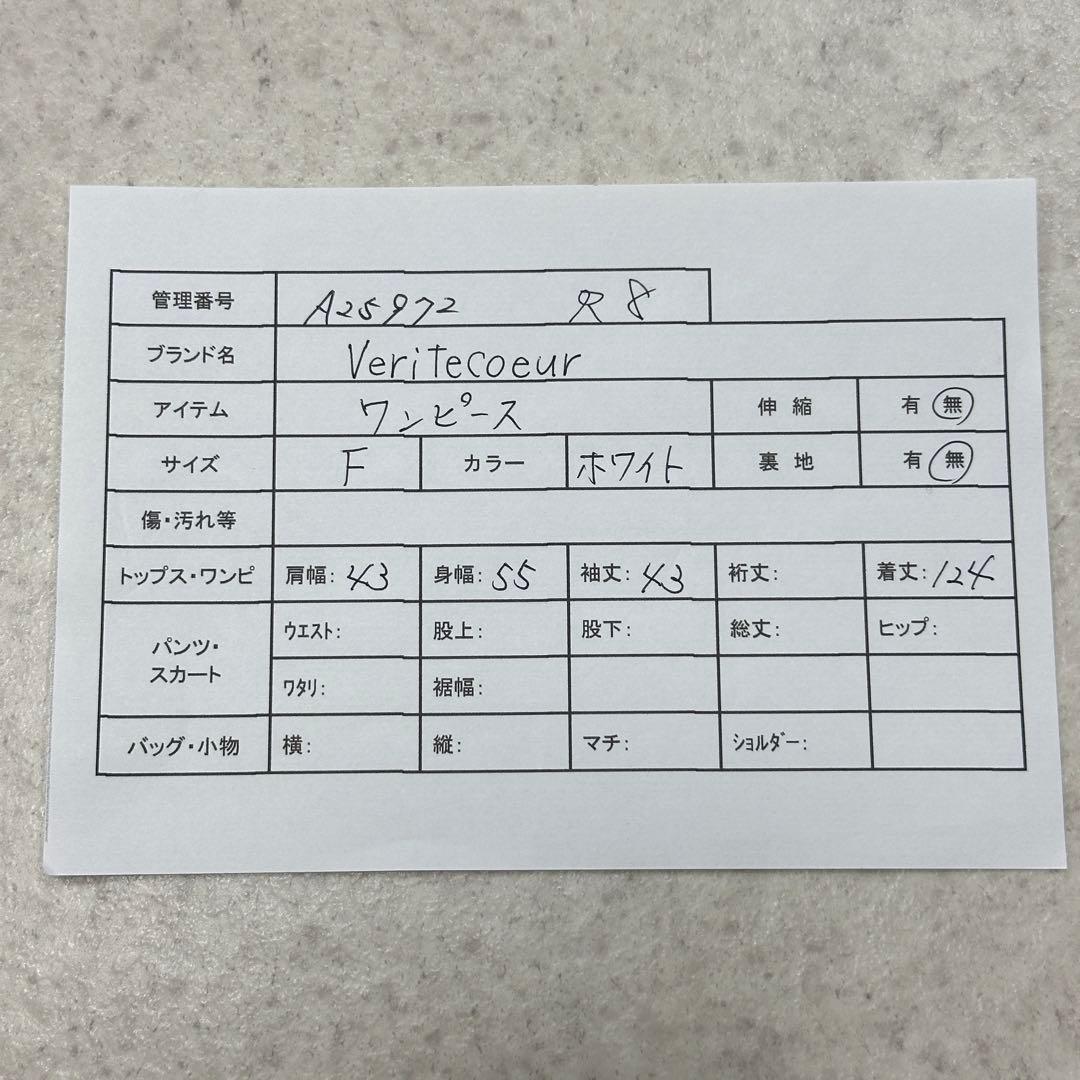 管理番号 A25972 R8
ブランド名 Veritecoeur
アイテム ワンピース 伸 縮 有 無
サイズ F カラー ホワイト 裏 地 有 無
傷・汚れ等
トップス・ワンピ 肩幅: 43 身幅: 55 袖丈: 43 裄丈: 着丈: 124
パンツ・スカート ウエスト: 股上: 股下: 総丈: ヒップ:
ワタリ: 裾幅:
バッグ・小物 横: 縦: マチ: ショルダー: